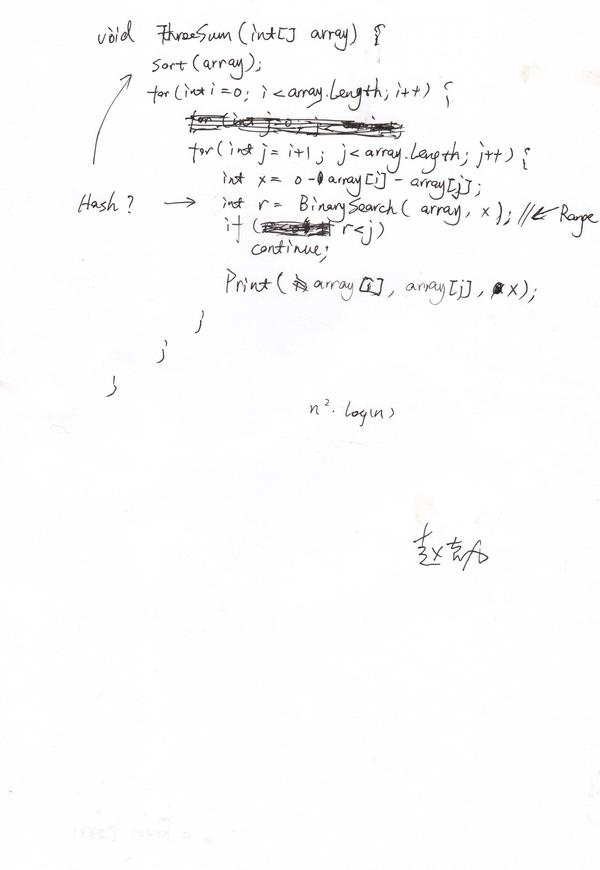 void ThreeSum(int[] array) {
sort(array);
for(int i=0; i<array.Length; i++) {
for(int j=i+1; j<array.Length; j++) {
int x = 0 - array[i] - array[j];
Hash? → int r = BinarySearch(array, x); // ← Range
if ( r<j)
continue;
Print( array[i], array[j], x);
}
}
}
n². log(n)